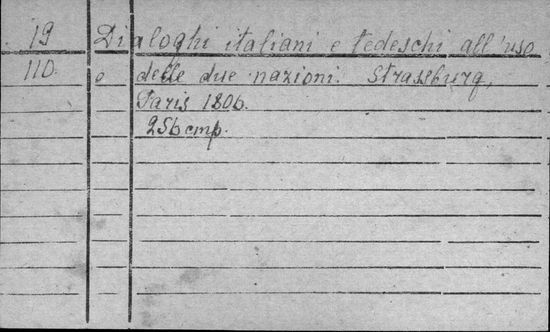 19 Dialoghi italiani e tedeschi all'uso
110. delle due nazioni. Strassburg,
Paris 1806.
256 стр.